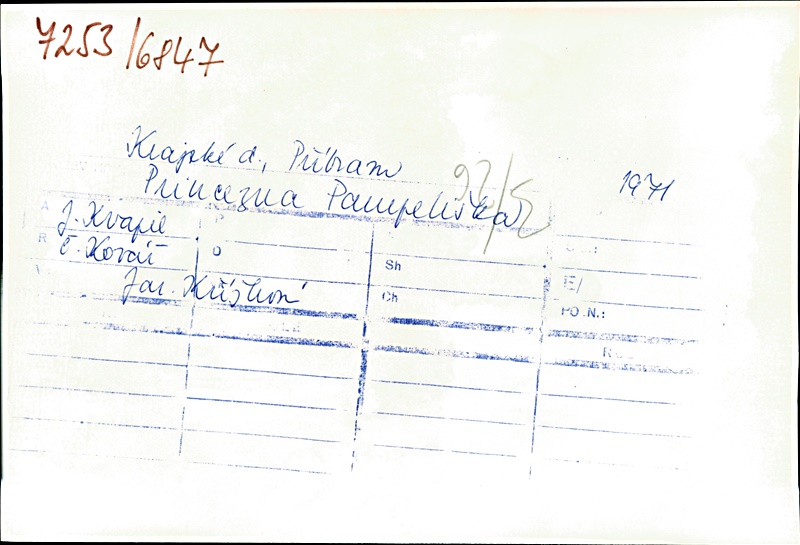 7253/6847
Krajské d., Příbram
Princezna Pampeliška
92/52
1971
A J. Kvapil P
R Č. Kovář O
Sh
E/
Jar. Křížkov
Ch
PO.N.: